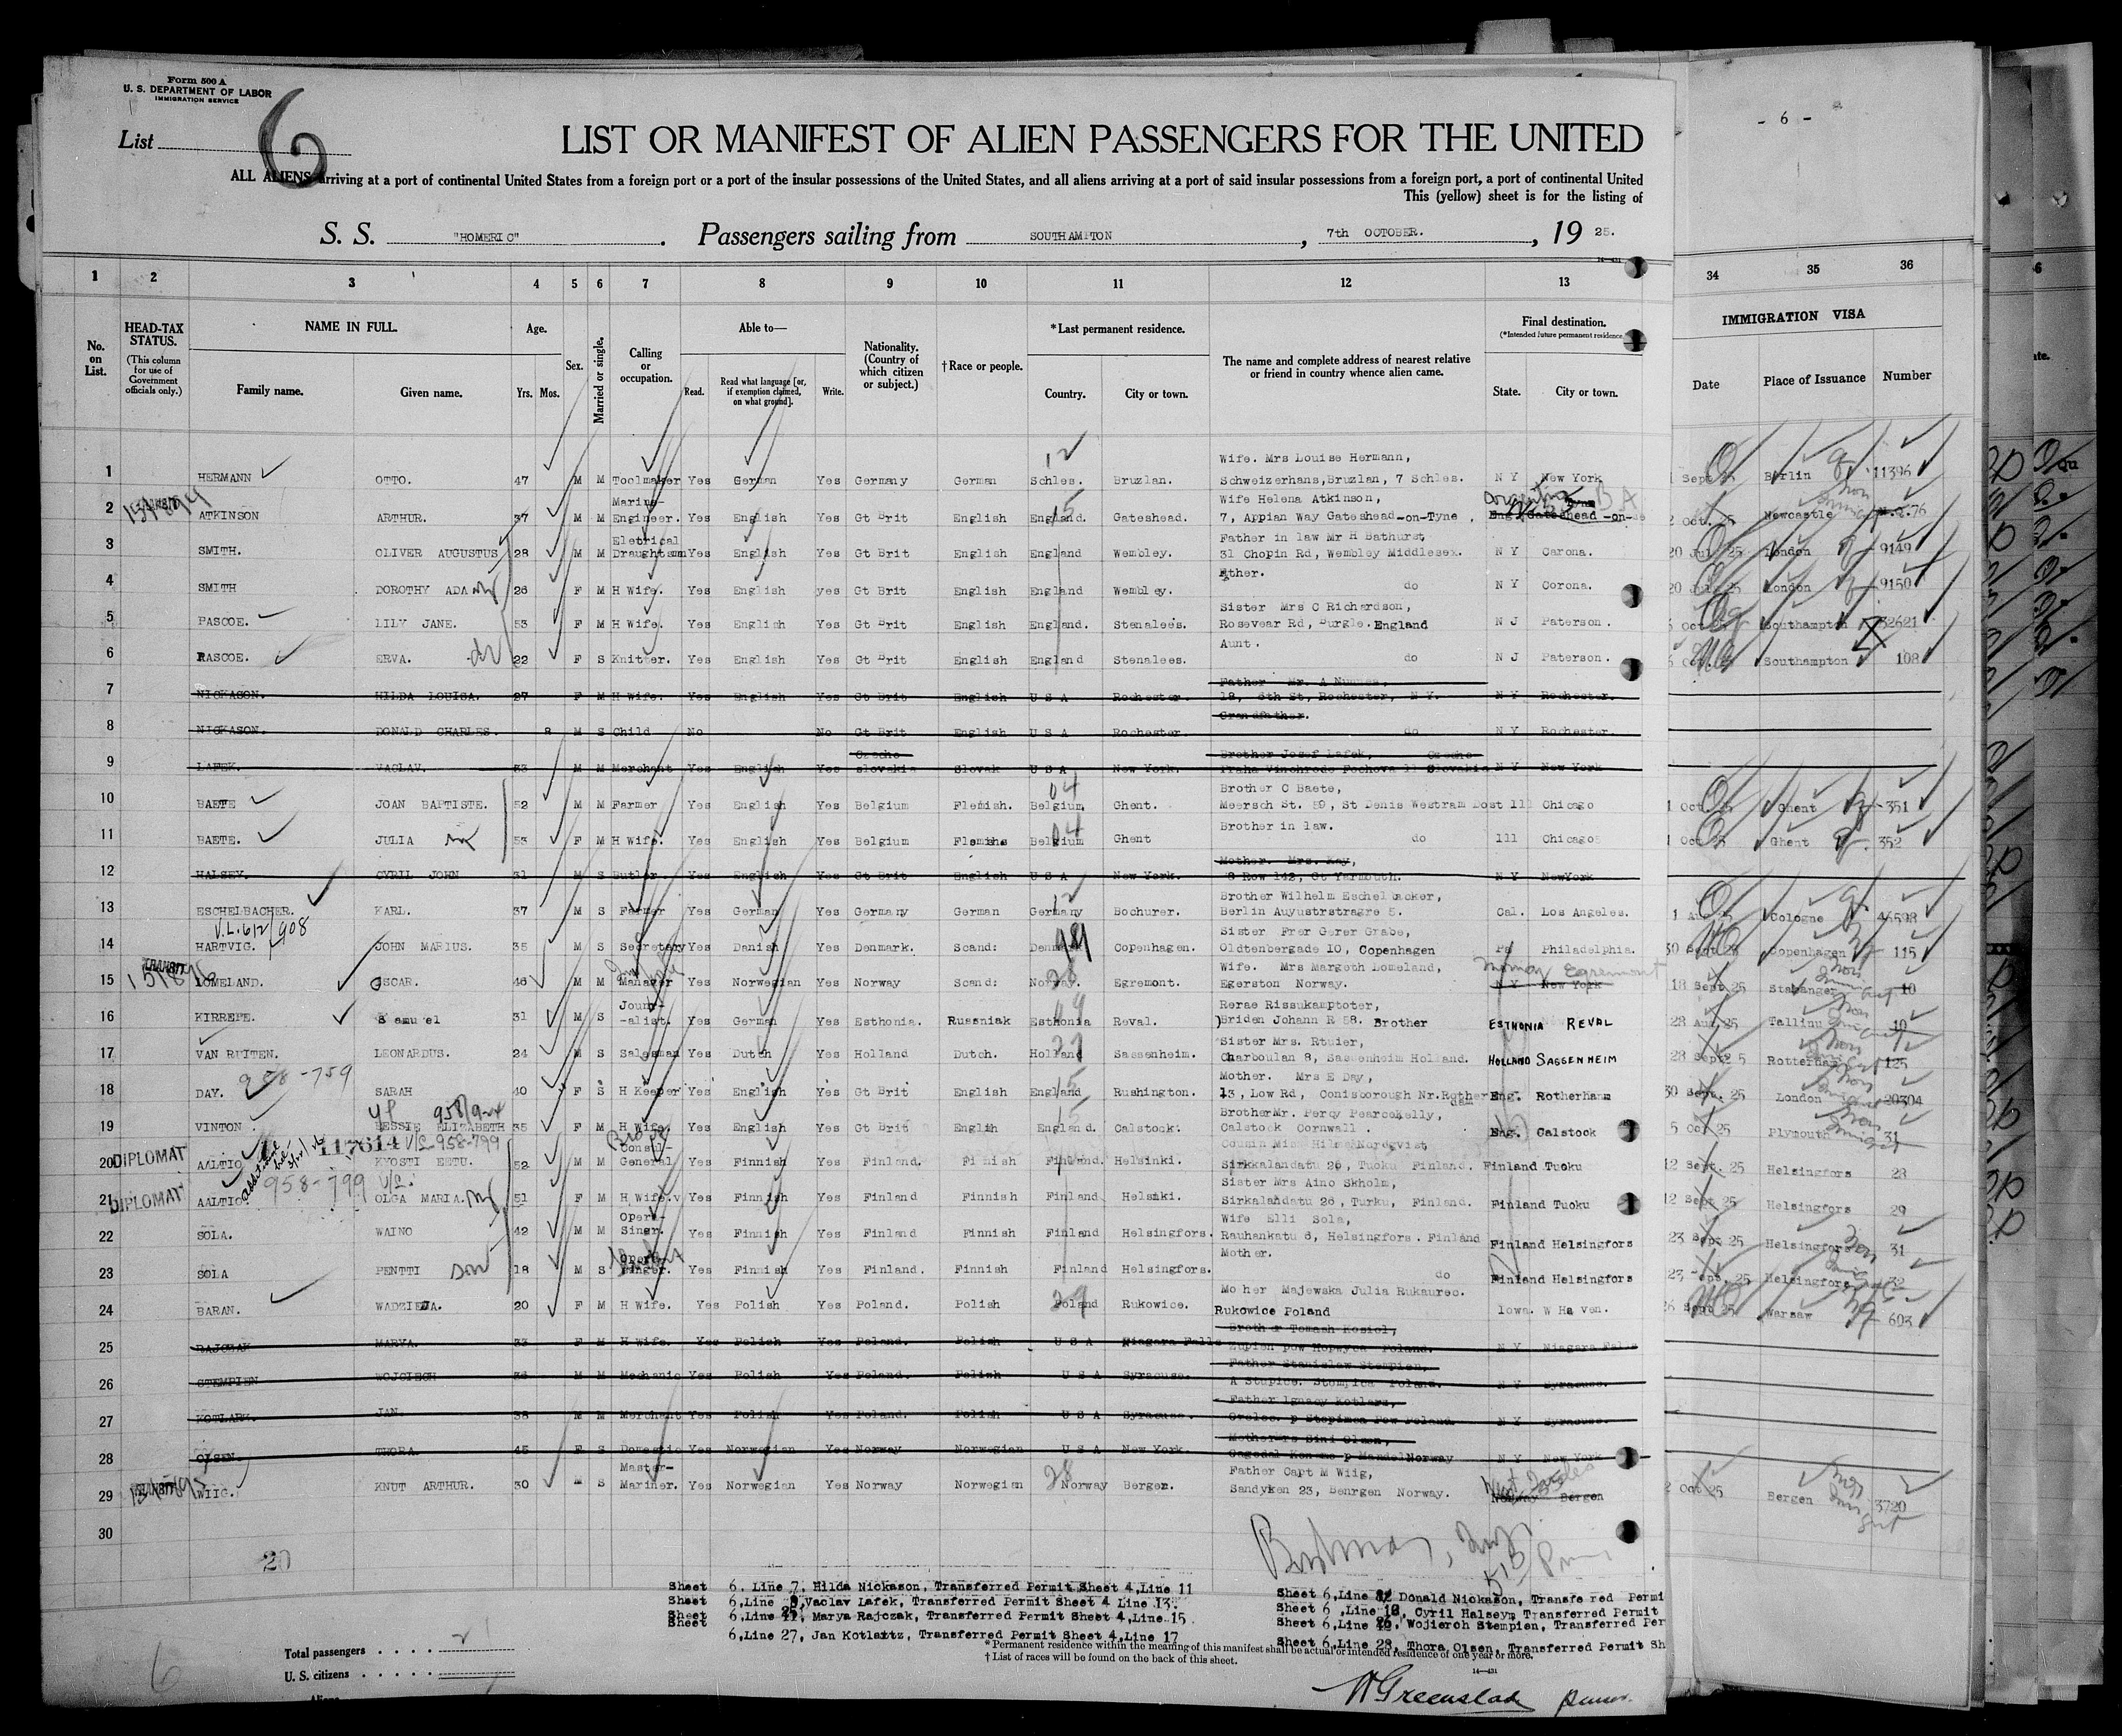 Form 500 A
U. S. DEPARTMENT OF LABOR
IMMIGRATION SERVICE
- 6 -
List 6
LIST OR MANIFEST OF ALIEN PASSENGERS FOR THE UNITED
ALL ALIENS arriving at a port of continental United States from a foreign port or a port of the insular possessions of the United States, and all aliens arriving at a port of said insular possessions from a foreign port, a port of continental United
This (yellow) sheet is for the listing of
S. S. "HOMERIC" . Passengers sailing from SOUTHAMPTON , 7th OCTOBER. , 19 25.
1 2 3 4 5 6 7 8 9 10 11 12 13 34 35 36
No. on List. HEAD-TAX STATUS. (This column for use of Government officials only.) NAME IN FULL. Family name. Given name. Age. Yrs. Mos. Sex. Married or single. Calling or occupation. Able to— Read. Read what language [or, if exemption claimed, on what ground]. Write. Nationality. (Country of which citizen or subject.) †Race or people. *Last permanent residence. Country. City or town. The name and complete address of nearest relative or friend in country whence alien came. Final destination. (*Intended future permanent residence. State. City or town. IMMIGRATION VISA Date Place of Issuance Number
Wife. Mrs Louise Hermann,
1 HERMANN OTTO. 47 M M Toolmaker Yes German Yes Germany German Schles. Bruzlan. Schweizerhans,Bruzlan, 7 Schles. N Y New York 1 Sept 25 Berlin 11396
Marine- Wife Helena Atkinson,
2 ATKINSON ARTHUR. 37 M M Engineer. Yes English Yes Gt Brit English England. Gateshead. 7, Appian Way Gateshead-on-Tyne, Eng. Gateshead -on- 2 Oct. 25 Newcastle
Eletrical Father in law Mr H Bathurst,
3 SMITH. OLIVER AUGUSTUS 28 M M Draughtsmn Yes English Yes Gt Brit English England Wembley. 31 Chopin Rd, Wembley Middlesex. N Y Carona. 20 Jul 25 London 9149
Father.
4 SMITH DOROTHY ADA 26 F M H Wife. Yes English yes Gt Brit English England Wembley. do N Y Corona. 20 Jul 25 London 9150
Sister Mrs C Richardson,
5 PASCOE. LILY JANE. 53 F M H Wife. Yes English Yes Gt Brit English England. Stenalees. Rosevear Rd, Burgle. England N J Paterson. Southampton 32621
Aunt.
6 PASCOE. ERVA. 22 F S Knitter. Yes English Yes Gt Brit English England Stenalees. do N J Paterson. Southampton 108
Father Mr. A Nunnes,
7 NICKASON. HILDA LOUISA. 27 F M H Wife. Yes English Yes Gt Brit English U S A Rochester. 18, 6th St, Rochester, N Y. N Y Rochester.
Grandfather.
8 NICKASON. DONALD CHARLES. 8 M S Child No No Gt Brit English U S A Rochester do N Y Rochester.
Czecho Brother Josef Lafek, Czecho
9 LAFEK. VACLAV. 33 M M Merchant Yes English Yes Slovakia Slovak U S A New York. Praha Vinohrode Fochova 11 Slovakia N Y New York
Brother C Baete,
10 BAETE JOAN BAPTISTE. 52 M M Farmer Yes English Yes Belgium Flemish. Belgium Ghent. Meersch St. 89, St Denis Westram Dost Ill Chicago 1 Oct 25 Ghent 351
Brother in law.
11 BAETE. JULIA 53 F M H Wife. Yes English Yes Belgium Flemishs Belgium Ghent do Ill Chicago 1 Oct 25 Ghent 352
Mother. Mrs. Kay,
12 HALSEY. CYRIL JOHN 31 M S Butler. Yes English Yes Gt Brit English U S A New York. 8 Row 142, Gt Yarmouth. N Y NewYork
Brother Wilhelm Eschelbacker,
13 ESCHELBACHER. KARL. 37 M S Farmer Yes German Yes Germany German Germany Bochurer. Berlin Auyustrstragre 5. Cal. Los Angeles. Cologne 46598
V.L. 612/908 Sister Frer Gerer Grabe,
14 HARTVIG. JOHN MARIUS. 35 M S Secretary Yes Danish Yes Denmark. Scand: Denmark Copenhagen. Oldtenbergade 10, Copenhagen Pa Philadelphia. 30 Sept 25 Copenhagen 115
TRANSIT Wife. Mrs Margoth Lomeland, Norway Egremont
15 LOMELAND. OSCAR. 46 M M Manager Yes Norwegian Yes Norway Scand: Norway. Egremont. Egerston Norway. N Y New York 18 Sept 25 Stavanger 10
Journ- Rerae Rissukamptoter,
16 KIRREPE. Samuel 31 M S -alist. Yes German Yes Esthonia. Russniak Esthonia Reval. Briden Johann R 58. Brother ESTHONIA REVAL 28 Aug 25 Tallinn 10
Sister Mrs. Rtuier,
17 VAN RUITEN. LEONARDUS. 24 M S Salesman Yes Dutch Yes Holland Dutch. Holland Sassenheim. Charboulan 8, Sassenheim Holland. HOLLAND SASSENHEIM 28 Sept 25 Rotterdam 125
958-759 Mother. Mrs E Day,
18 DAY. SARAH 40 F S H Keeper Yes English Yes Gt Brit English England Rushington. 13, Low Rd, Conisborough Nr.Rother Eng. Rotherham 30 Sept. 25 London 20304
Brother Mr. Percy Pearce Kelly,
19 VINTON BESSIE ELIZABETH 35 F M H Wife Yes English Yes Gt Brit English England. Calstock. Calstock Cornwall. Eng. Calstock 5 Oct 25 Plymouth 31
DIPLOMAT 117614 V/L 958-799 Consul- Cousin Miss Hilma Nordqvist
20 AALTIO KYOSTI EETU. 52 M M General Yes Finnish Yes Finland. Finnish Finland. Helsinki. Sirkkalandatu 26, Tuoku Finland. Finland Tuoku 12 Sept. 25 Helsingfors 28
DIPLOMAT 958-799 V/L. Sister Mrs Aino Skholm,
21 AALTIO OLGA MARIA. 51 F M H Wife. Yes Finnish Yes Finland Finnish Finland Helsinki. Sirkalandatu 26, Turku, Finland. Finland Tuoku 12 Sept 25 Helsingfors 29
Opera- Wife Elli Sola,
22 SOLA. WAINO 42 M M Singr. Yes Finnish Yes Finland Finnish Finland Helsingfors. Rauhankatu 6, Helsingfors. Finland Finland Helsingfors 23 Sept 25 Helsingfors 31
Mother.
23 SOLA PENTTI son 18 M S Singer. Yes Finnish Yes Finland. Finnish Finland Helsingfors. do Finland Helsingfors 23 Sept. 25 Helsingfors 32
Mother Majewska Julia Rukaurec.
24 BARAN. WADZIEJA. 20 F M H Wife. Yes Polish Yes Poland. Polish Poland Rukowice. Rukowice Poland Iowa. W Haven. 26 Sept 25 Warsaw 603
Brother Tomash Kosiol,
25 RAJCZAK MARYA. 33 F M H Wife Yes Polish Yes Poland. Polish U S A Niagara Falls Zupien pow Hopwyca Poland. N Y Niagara Falls
Father Stanislaw Stempien,
26 STEMPIEN WOJCIECH M M Mechanic Yes Polish Yes Poland. Polish U S A Syracuse. A Stupice. Stempica Poland. N Y Syracuse.
Father Ignacy Kotlarz,
27 KOTLARK. JAN. 38 M M Merchant Yes Polish Yes Poland. Polish U S A Syracuse. N Y Syracuse.
28 OLSEN. THORA. 45 F S Domestic Yes Norwegian Yes Norway Norwegian U S A New York. Norway N Y New York
Master- Father Capt M Wiig,
29 WIIG. KNUT ARTHUR. 30 M S Mariner. Yes Norwegian Yes Norway Norwegian Norway Bergen. Sandyken 23, Benrgen Norway. Norway Bergen 2 Oct 25 Bergen 3720
30
20
Sheet 6. Line 7, Hilda Nickason, Transferred Permit Sheet 4,Line 11
Sheet 6,Line 9,Vaclav Lafek, Transferred Permit Sheet 4 Line 13.
Sheet 6,Line 25, Marya Rajczak, Transferred Permit Sheet 4,Line 15.
Sheet 6,Line 27, Jan Kotlartz, Transferred Permit Sheet 4,Line 17
Sheet 6,Line 8, Donald Nickason, Transferred Permi
Sheet 6,Line 12, Cyril Halseym Transferred Permit
Sheet 6,Line 26, Wojieroh Stempien, Transferred Per
Sheet 6,Line 28, Thora Olsen, Transferred Permit Sh
*Permanent residence within the meaning of this manifest shall be actual or intended residence of one year or more.
†List of races will be found on the back of this sheet.
14—431
Total passengers . . . . 21
U. S. citizens . . . . .
6
WGreenslade Purser.